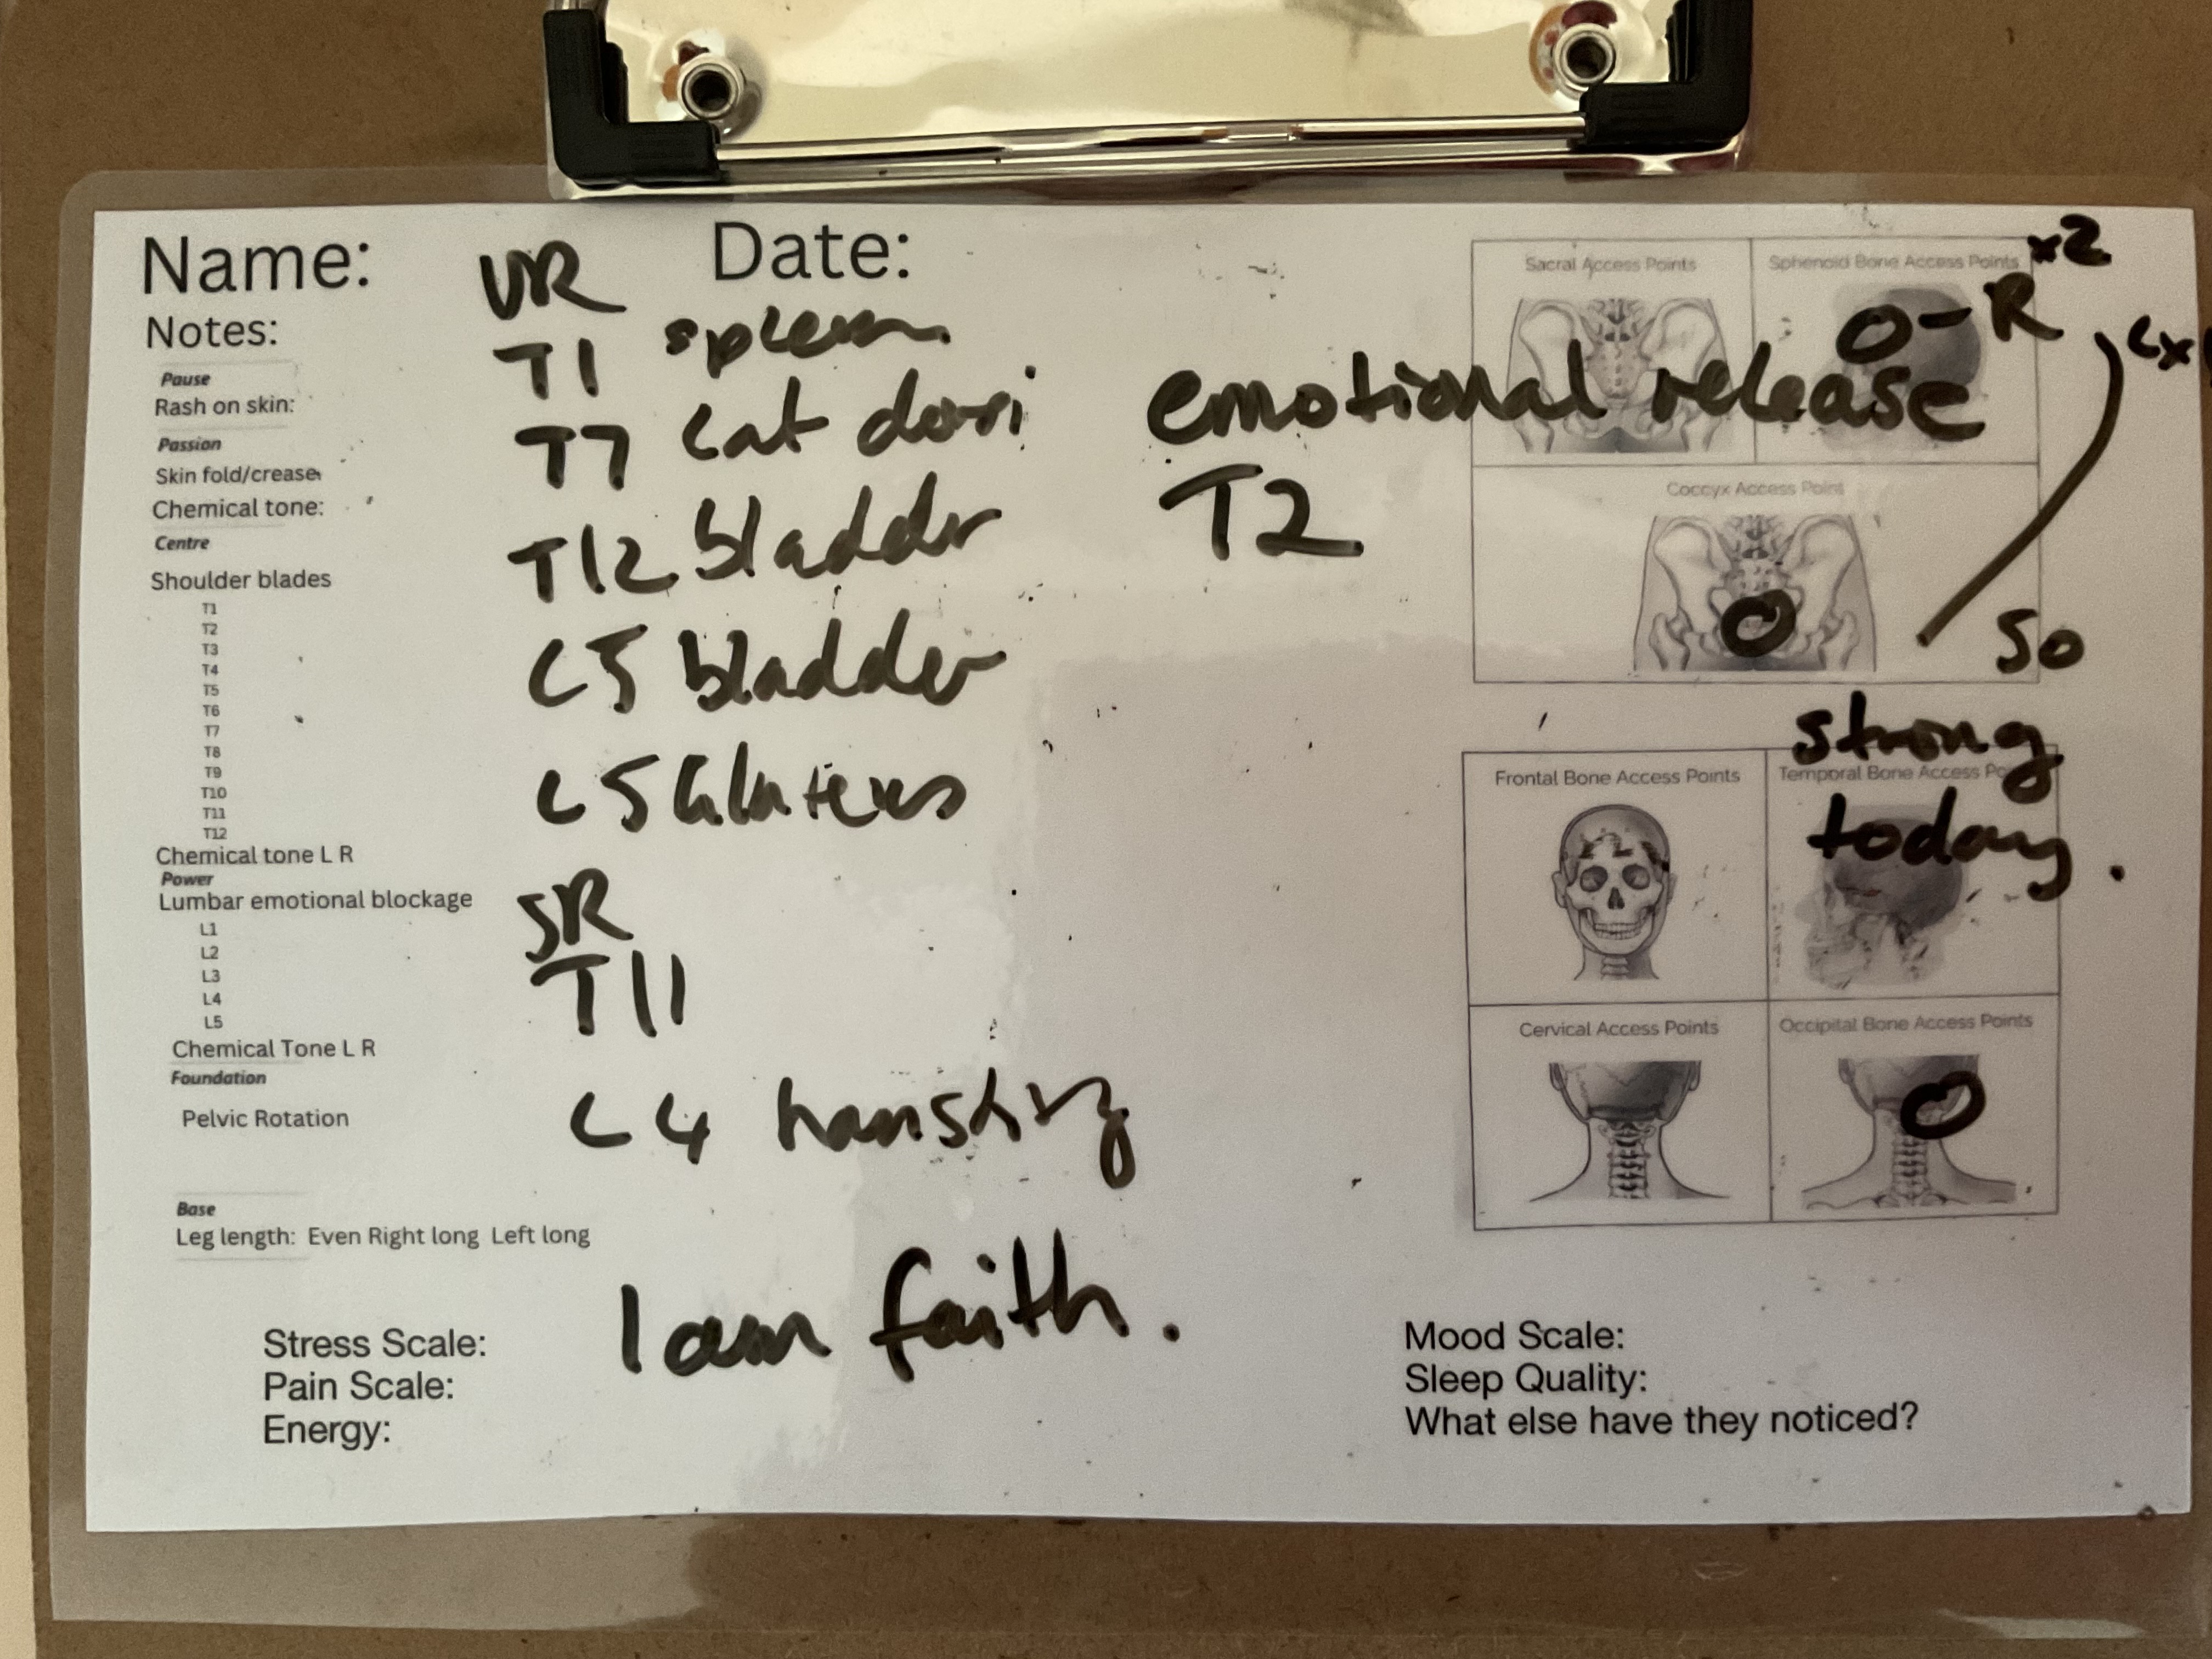 Name:
Date:
Notes:
Pause
Rash on skin:
Passion
Skin fold/crease
Chemical tone:
Centre
Shoulder blades
T1
T2
T3
T4
T5
T6
T7
T8
T9
T10
T11
T12
Chemical tone L R
Power
Lumbar emotional blockage
L1
L2
L3
L4
L5
Chemical Tone L R
Foundation
Pelvic Rotation
Base
Leg length: Even Right long Left long
Stress Scale:
Pain Scale:
Energy:
UR
T1 spleen
T7 Lat dorsi
T12 bladder
L5 bladder
L5 Gluteus
SR
T11
L4 hamstring
I am faith.
emotional release
T2
Sacral Access Points
Sphenoid Bone Access Points
x2
O-R
Coccyx Access Point
So
strong
today.
Frontal Bone Access Points
Temporal Bone Access
Cervical Access Points
Occipital Bone Access Points
Mood Scale:
Sleep Quality:
What else have they noticed?